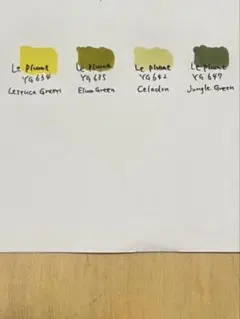 Le Plume
YG 634
Lettuce Green
Le Plume
YG 635
Elm Green
Le Plume
YG 642
Celadon
Le Plume
YG 647
Jungle Green